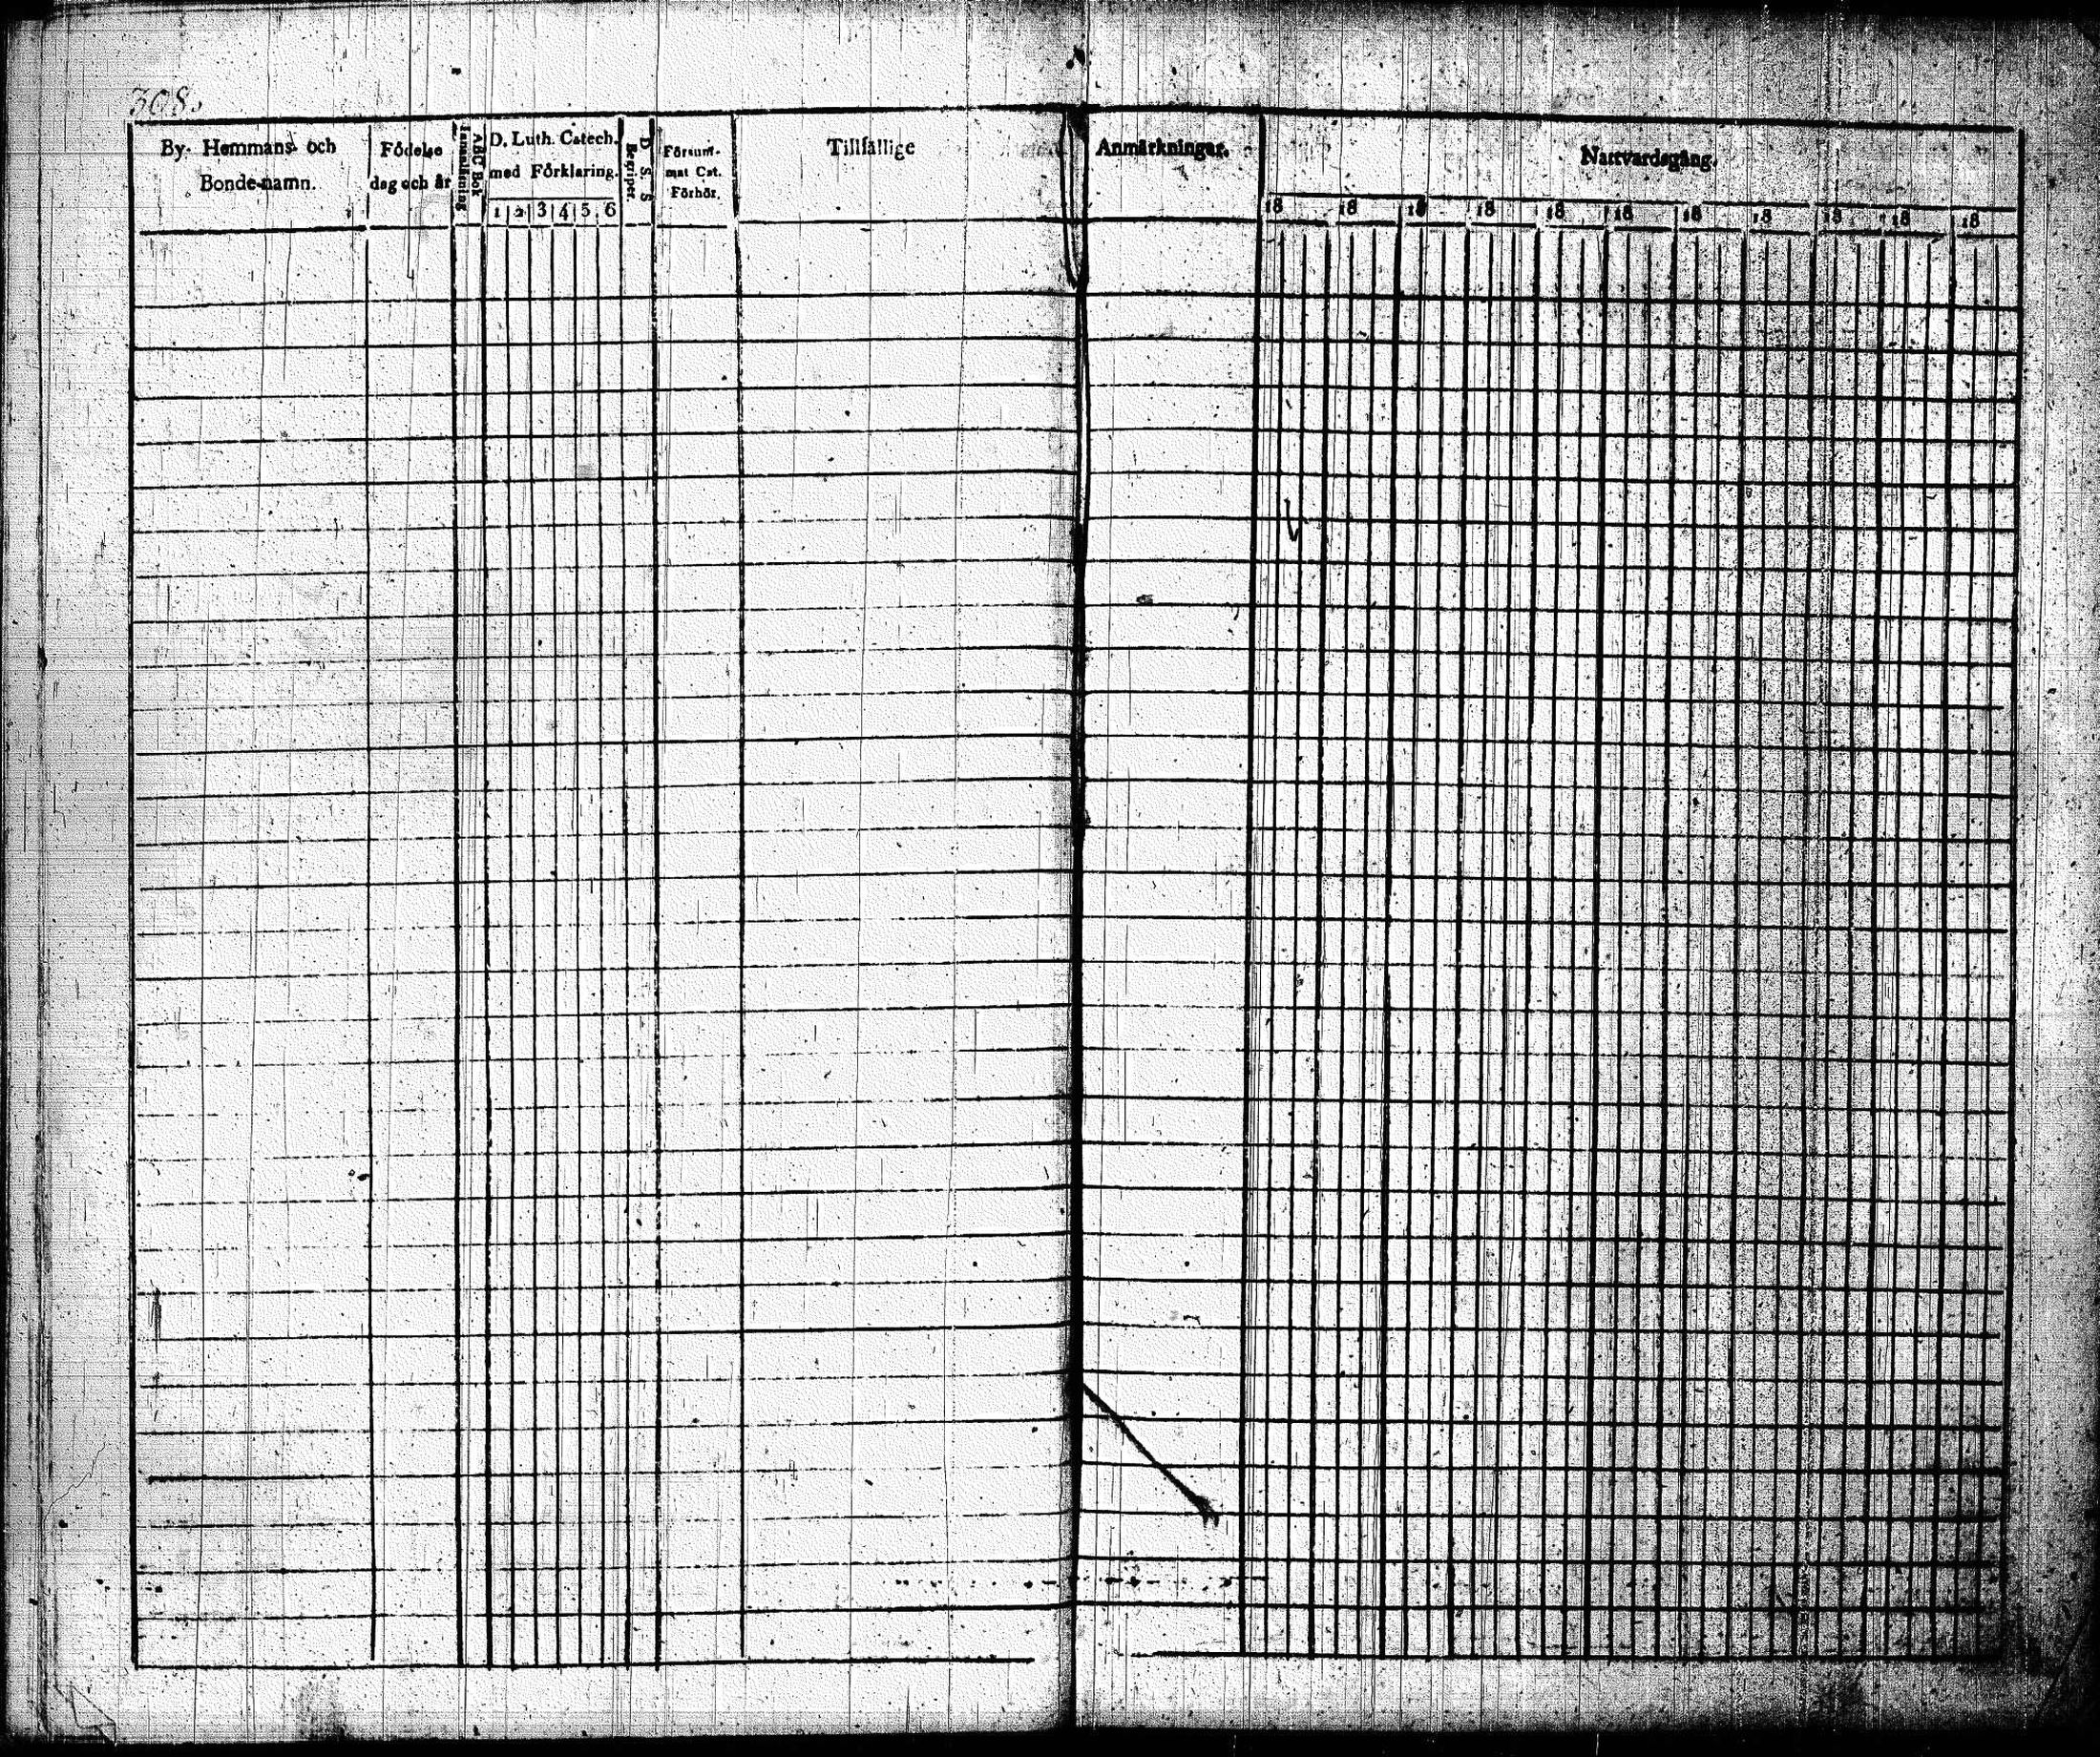 308.
By- Hemmans- och
Bonde-namn.
Födelse
dag och år
Innanläsning
ABC Bok
D. Luth. Catech.
med Förklaring.
1 2 3 4 5 6
D. S. S
Begriper.
Försum-
mat Cat.
Förhör.
Tillfällige
Anmärkningar.
Nattvardsgång.
18 18 18 18 18 18 18 18 18 18 18